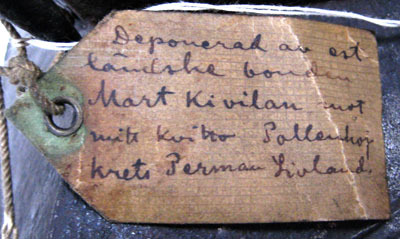 Deponerad av est
ländske bonden
Mart Kivilan mot
mitt kvitto Pollenhof
krets Pernau Livland.